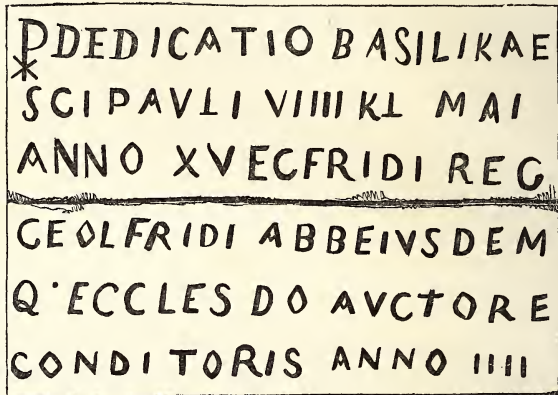 ⳨ DEDICATIO BASILIKAE
SCI PAVLI VIIII KL MAI
ANNO XV ECFRIDI REG
CEOLFRIDI ABB EIVSDEM
Q· ECCLES DO AVCTORE
CONDITORIS ANNO IIII